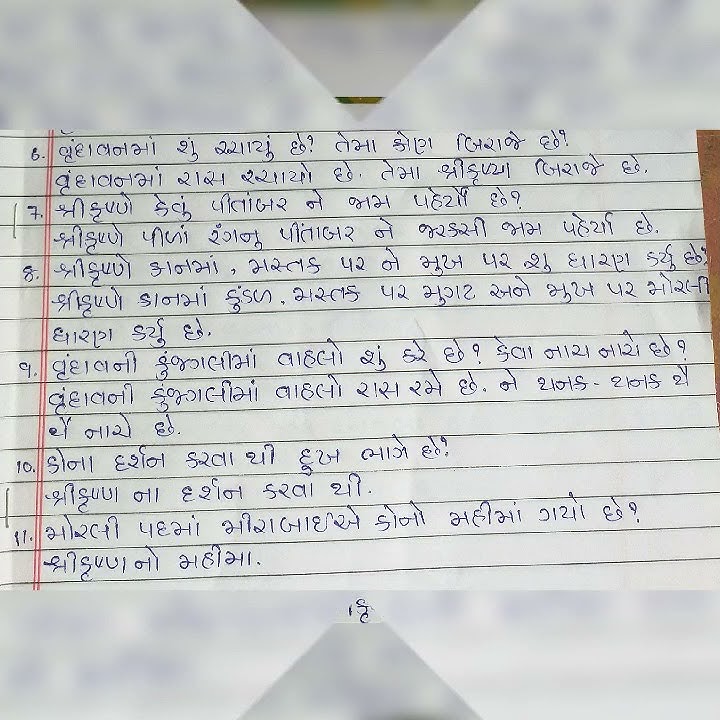 6. વૃંદાવનમાં શું રચાયું છે? તેમા કોણ બિરાજે છે?
વૃંદાવનમાં રાસ રચાયો છે. તેમા શ્રીકૃષ્ણ બિરાજે છે.
7. શ્રીકૃષ્ણે કેવું પીતાંબર ને જામ પહેર્યાં છે?
શ્રીકૃષ્ણે પીળાં રંગનુ પીંતાબર ને જરકસી જામ પહેર્યા છે.
8. શ્રીકૃષ્ણે કાનમાં, મસ્તક પર ને મુખ પર શુ ધારણ કર્યુ છે?
શ્રીકૃષ્ણે કાનમાં કુંડળ, મસ્તક પર મુગટ અને મુખ પર મોરલી
ધારણ કર્યુ છે.
૧. વૃંદાવની કુંજગલીમાં વાહલો શું કરે છે? કેવા નાચ નાચે છે?
વૃંદાવની કુંજગલીમાં વાહલો રાસ રમે છે. ને થનક - થનક થૈ
થૈ નાચે છે.
10. કોના દર્શન કરવા થી દુખ ભાગે છે?
શ્રીકૃષ્ણ ના દર્શન કરવા થી.
11. મોરલી પદમાં મીરાબાઈએ કોનો મહીમાં ગાયો છે?
શ્રીકૃષ્ણ નો મહીમા.